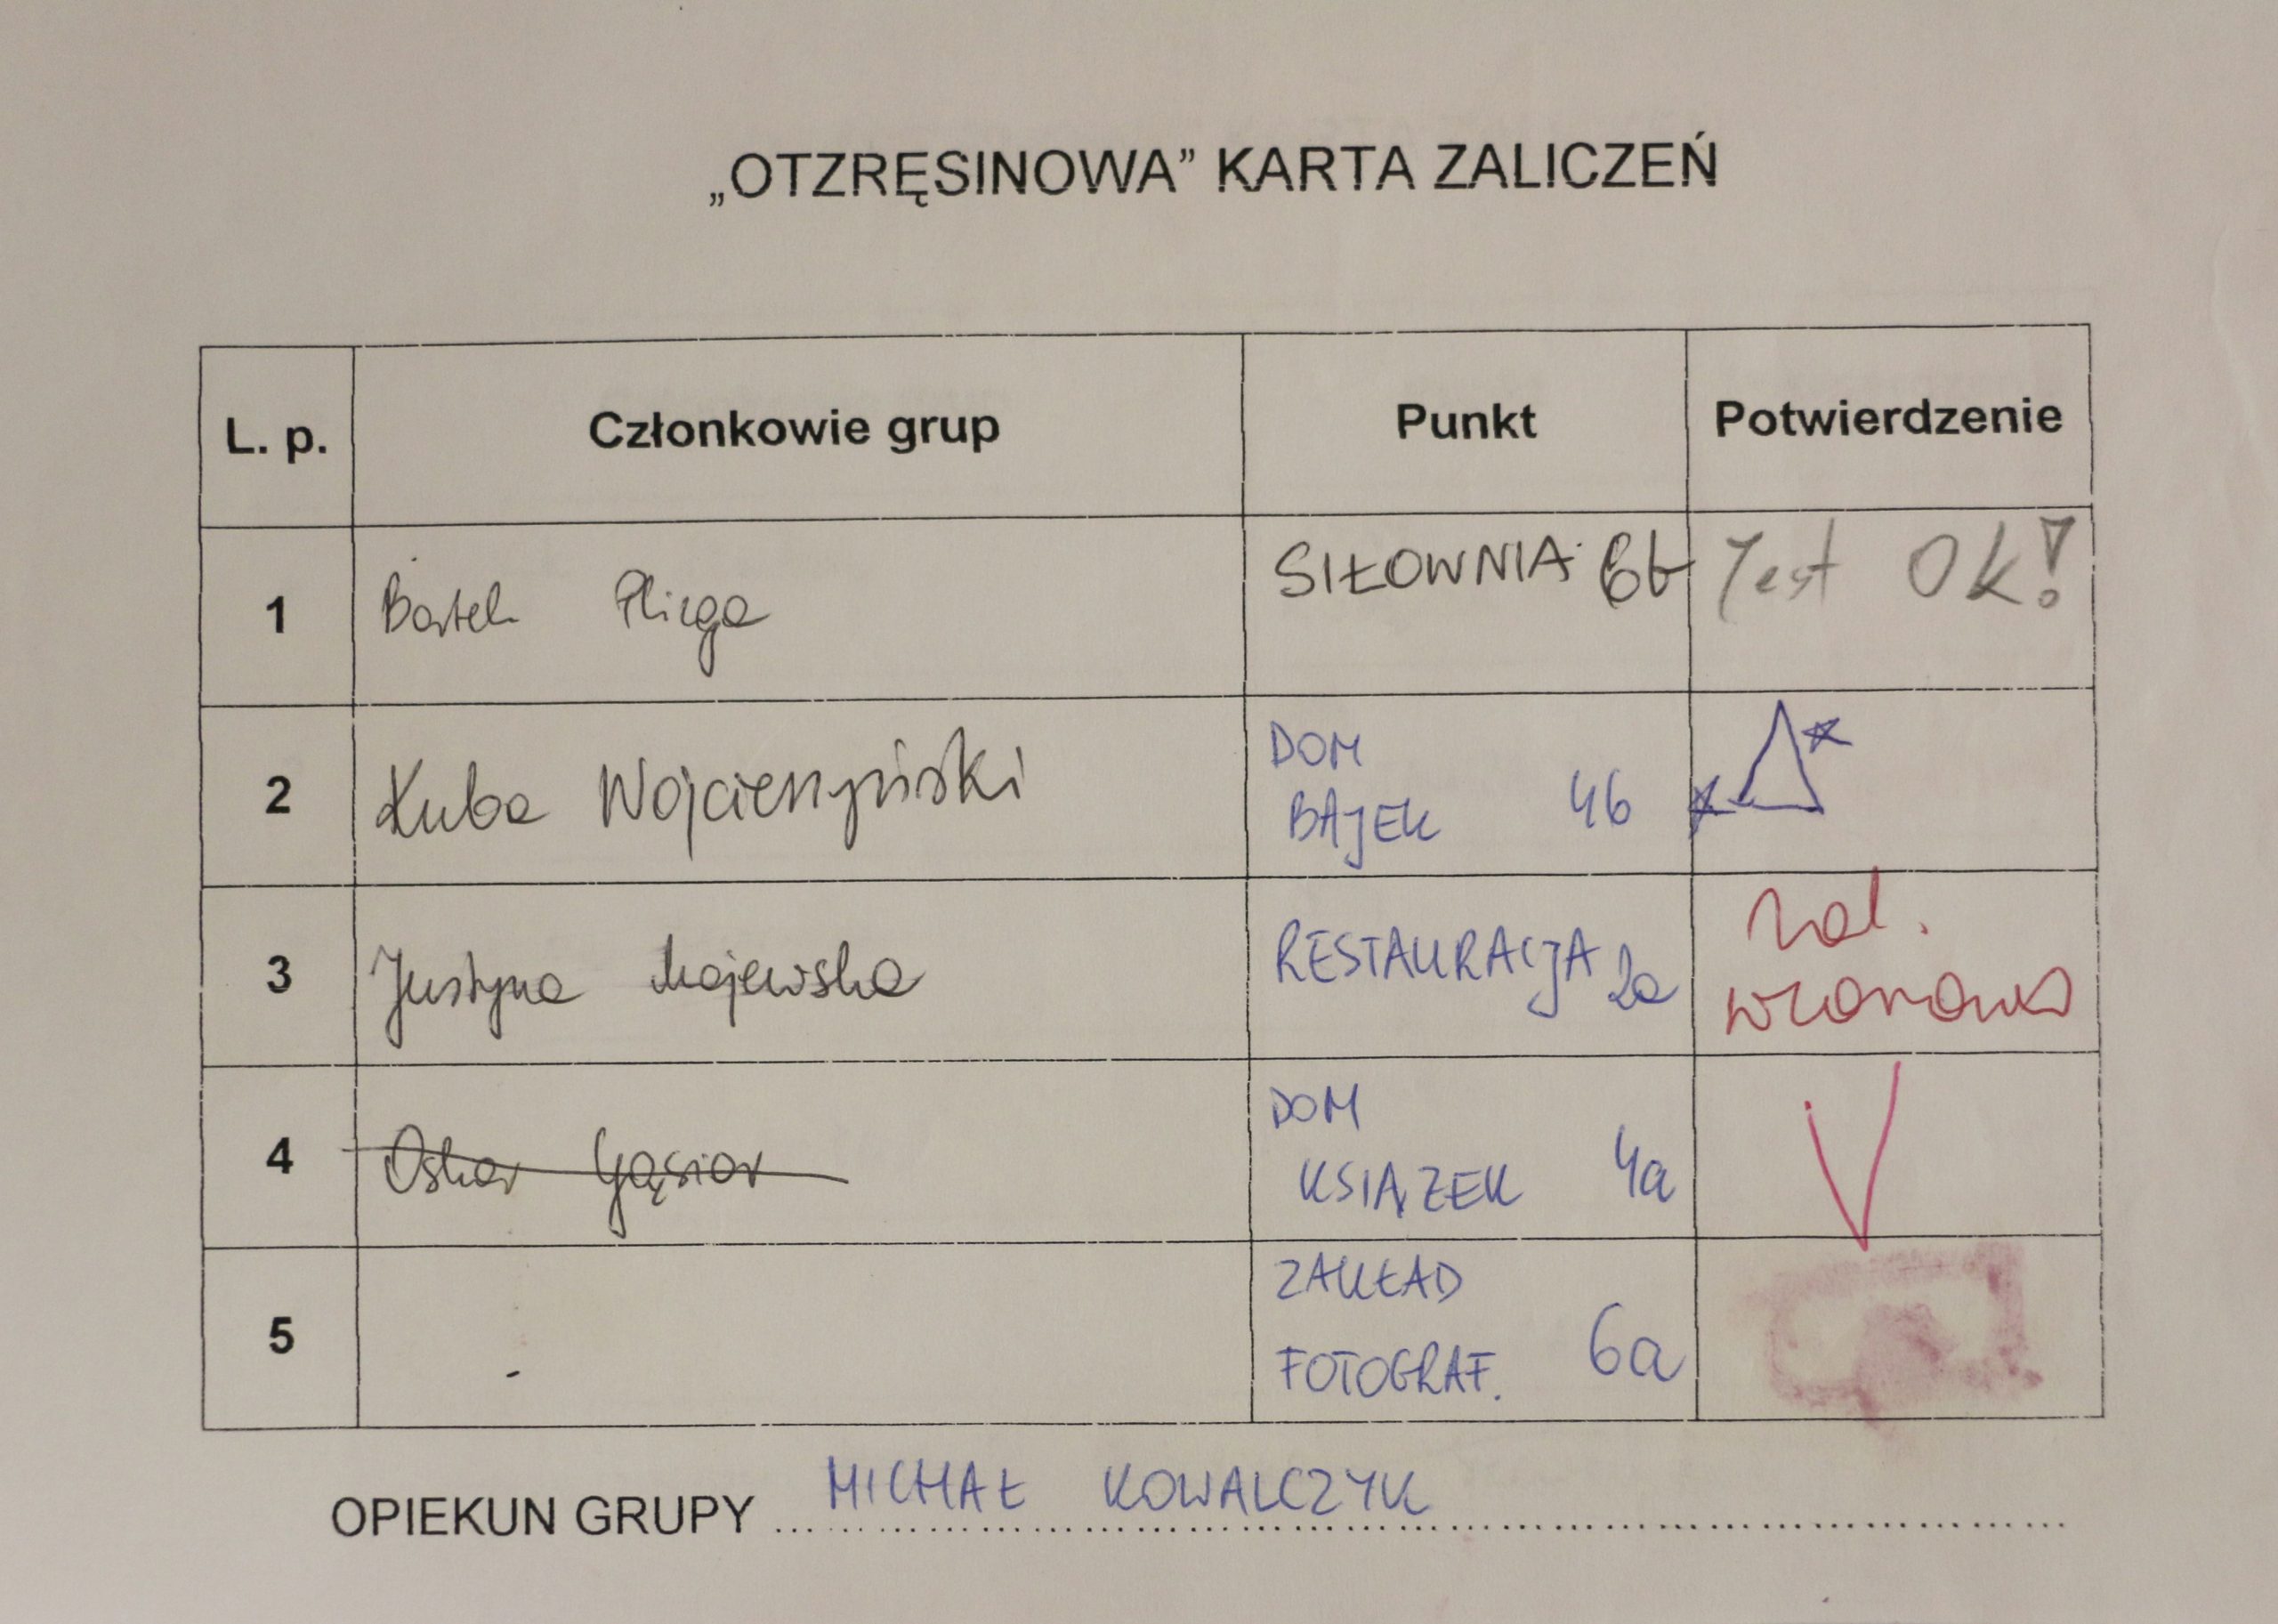 „OTZRĘSINOWA” KARTA ZALICZEŃ
L. p. Członkowie grup Punkt Potwierdzenie
1 Bartek Pliega SIŁOWNIA 6b Jest Ok!
2 Kuba DOM
BAJEK 4b
3 Justyna Majewska RESTAURACJA 2a zal.
wzorowo
4 Oskar Gąsior DOM
KSIĄZEK 4a
5 ZAKŁAD
FOTOGRAF. 6a
OPIEKUN GRUPY MICHAŁ KOWALCZYK